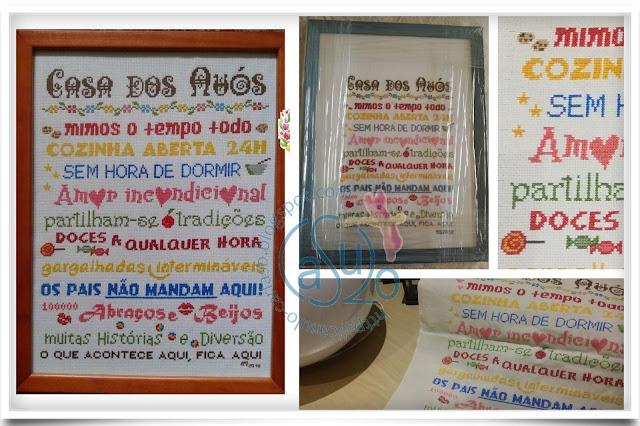 CASA DOS AVÓS
mimos o tempo todo
COZINHA ABERTA 24H
SEM HORA DE DORMIR
Amor incondicional
partilham-se tradições
DOCES A QUALQUER HORA
gargalhadas intermináveis
OS PAIS NÃO MANDAM AQUI!
100000 Abraços e Beijos
muitas Histórias e Diversão
O QUE ACONTECE AQUI, FICA AQUI
CASA DOS AVÓS
mimos o tempo todo
COZINHA ABERTA 24H
SEM HORA DE DORMIR
Amor incondicional
partilham-se tradições
DOCES A QUALQUER HORA
gargalhadas intermináveis
OS PAIS NÃO MANDAM AQUI!
Abraços e Beijos
muitas Histórias e Diversão
O QUE ACONTECE AQUI, FICA AQUI
mimo
COZINH
SEM H
Amor
partilha
DOCES
COZINHA ABERTA 24H
SEM HORA DE DORMIR
Amor incondicional
partilham-se tradições
DOCES A QUALQUER HORA
gargalhadas intermináveis
OS PAIS NÃO MANDAM AQUI!
100000 Abraços e Beijos